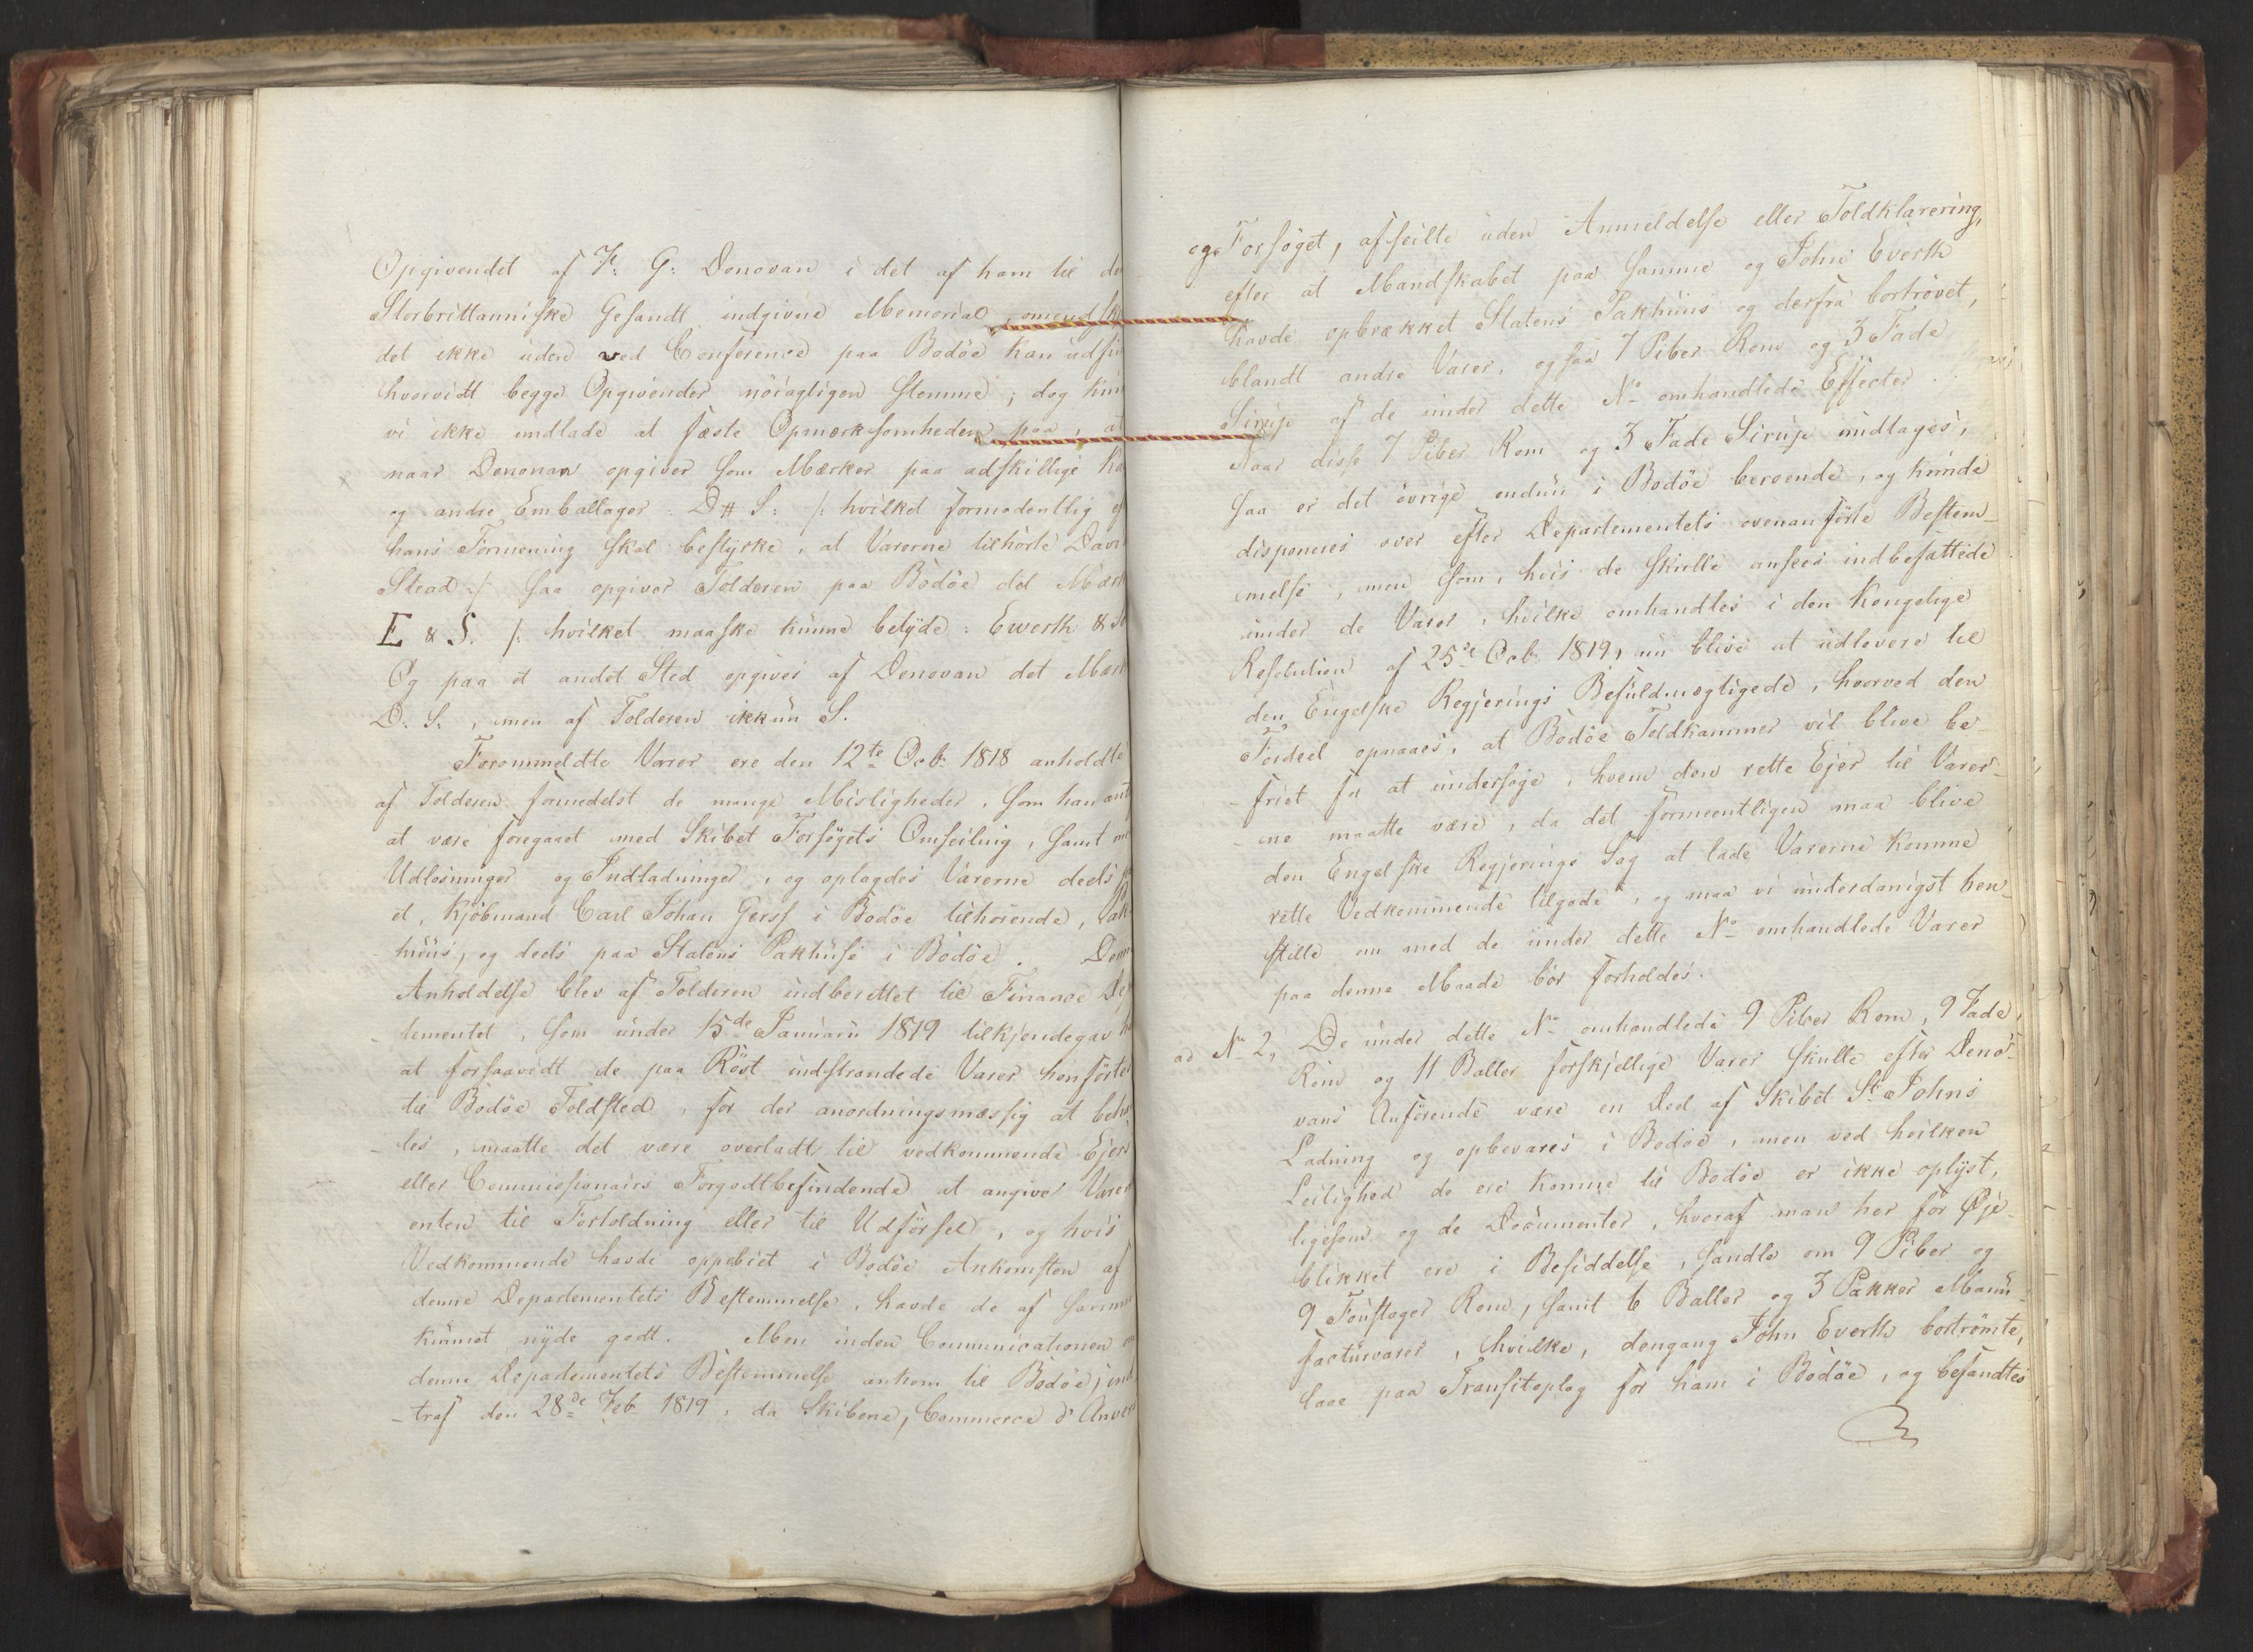 Opgivendet af F: G: Donovan i det af ham til de
Storbrittanniske Gesandt indgivne Memorial, omendsk
det ikke uden ved Conference paa Bodöe kan udfin
hvorvidt begge Opgivender nöiagtigen stemme; dog kun
vi ikke undlade at fæste Opmerksomheden paa, at
naar Denonan opgiver som Mærker paa adskillige
og andre Emballager: D # S: /: hvilket formodentlig ef
hans Formening skal bestyrke, at Varerne tilhörte Davi
Stead :/ saa opgiver Tolderen paa Bodöe det Mær
E & S. /: hvilket maaske kunne betyde: Ewerth & S
Og paa et andet Sted opgives af Denovan det Mær
D: S:, men af Tolderen ikkun S.
Forommeldte Varer ere den 12te Octb: 1818 anholdte
af Tolderen formedelst de mange Misligheder, som han ant
at være foregaaet med Skibet Forsögets Omseiling, samt m
Udlosninger og Indladninger, og oplagdes Varerne deels p
et, Kjöbmand Carl Johan Gerss i Bodöe tilhörende, Pak
huus, og deels paa Statens Pakhuse i Bodöe. Denn
Anholdelse blev af Tolderen indberettet til Finance De
tementet, som under 15de Januarii 1819 tilkjendegav h
at forsaavidt de paa Röst indstrandede Varer henförte
til Bodöe Toldsted, for der anordningsmæssig at beha
les, maatte det være overladt til vedkommende Ejer
eller Commissionairs Forgodtbefindende at angive Varer
enten til Fortoldning eller til Udförsel, og hvis
Vedkommende havde oppebiet i Bodöe Ankomsten af
denne Departementets Bestemmelse, havde de af samme
kunnet nyde godt. Men inden Communicationen
denne Departementets Bestemmelse ankom til Bodöe, ind
-traf den 28de Feb 1819, da Skibene, Commerce d'Anver
og Forsöget, afseilte uden Anmeldelse eller Toldklarering,
efter at Mandskabet paa samme og John Everth
havde opbrækket Statens Pakhuus og derfra bortrövet,
blandt andre Varer, ogsaa 7 Piber Rom og 3 Fade
Sirup af de under dette No omhandlede Effecter.
Naar disse 7 Piber Rom og 3 Fade Sirup undtages,
saa er det övrige endnu i Bodöe beroende, og kunde
disponeres over efter Departementets ovenanförte Bestem-
melse, men som, hvis de skulle ansees indbefattede
under de Varer, hvilke omhandles i den Kongelige
Resolution af 25de Octb: 1819, nu blive at udlevere til
den Engelske Regjerings Befuldmægtigede, hvorved den
Fordeel opnaaes, at Bodöe Toldkammer vil blive be-
-friet for at undersöge, hvem den rette Ejer til Varer-
ne maatte være, da det formeentligen maa blive
den Engelske Regjerings Sag at lade Varerne komme
rette Vedkommende tilgode, og maa vi underdanigst hen-
stille om med de under dette No omhandlede Varer
paa denne Maade bör forholdes.
ad No 2, De under dette No omhandlede 9 Piber Rom, 9 Fade
Rom og 11 Baller forskjellige Varer skulle efter Deno-
vans Anförende være en Deel af Skibet St. Johns
Ladning og opbevares i Bodöe, men ved hvilken
Leilighed de ere komne til Bodöe er ikke oplyst,
ligesom og de Documenter, hvoraf man her for Øje-
blikket ere i Besiddelse, handle om 9 Piber og
9 Foustager Rom, samt 6 Baller og 3 Pakker Manu-
facturvarer, hvilke, dengang John Everth bortrömte,
laae paa Transitoplag for ham i Bodöe, og befandtes